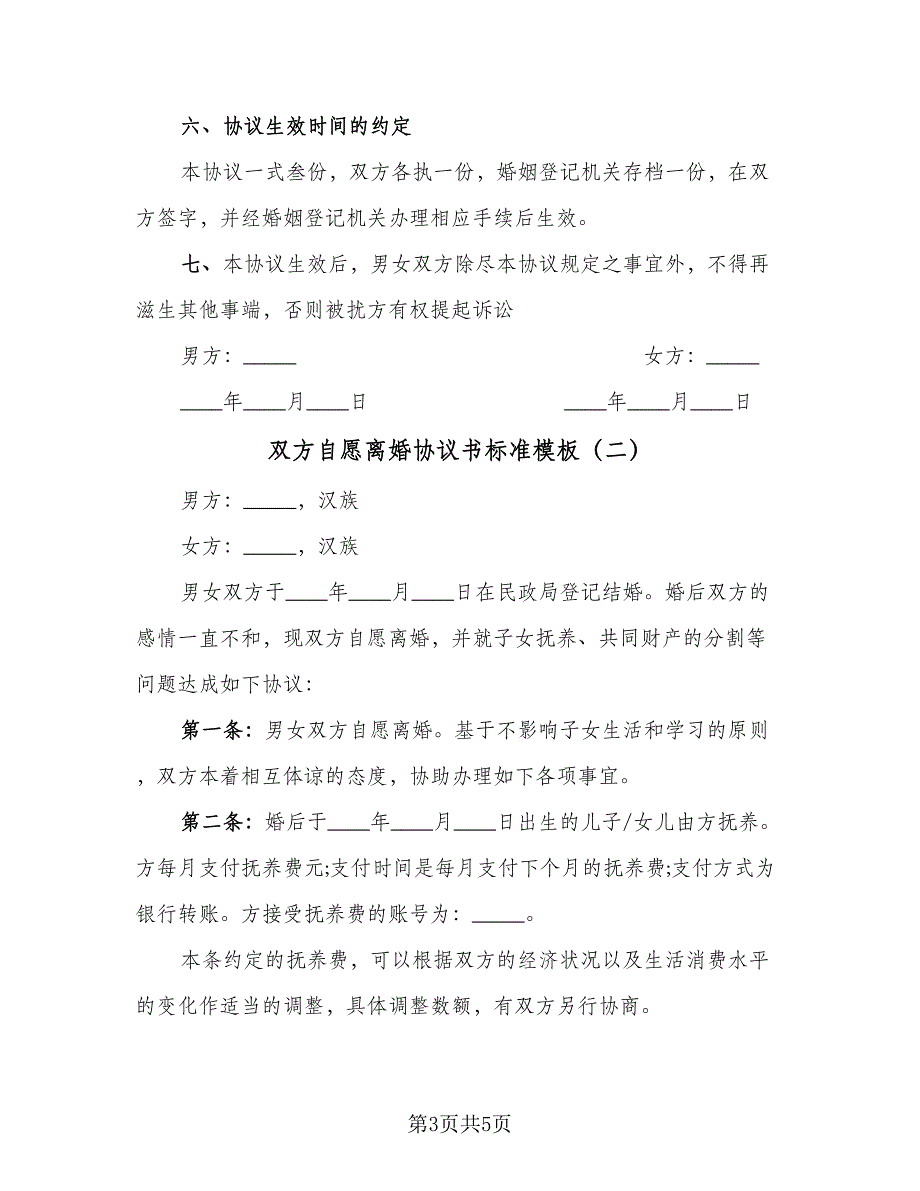 六、协议生效时间的约定
本协议一式叁份，双方各执一份，婚姻登记机关存档一份，在双
方签字，并经婚姻登记机关办理相应手续后生效。
七、本协议生效后，男女双方除尽本协议规定之事宜外，不得再
滋生其他事端，否则被扰方有权提起诉讼
男方：_____ 女方：_____
____年____月____日 ____年____月____日
双方自愿离婚协议书标准模板（二）
男方：_____，汉族
女方：_____，汉族
男女双方于____年____月____日在民政局登记结婚。婚后双方的
感情一直不和，现双方自愿离婚，并就子女抚养、共同财产的分割等
问题达成如下协议：
第一条：男女双方自愿离婚。基于不影响子女生活和学习的原则
，双方本着相互体谅的态度，协助办理如下各项事宜。
第二条：婚后于____年____月____日出生的儿子/女儿由方抚养。
方每月支付抚养费元;支付时间是每月支付下个月的抚养费;支付方式为
银行转账。方接受抚养费的账号为：_____。
本条约定的抚养费，可以根据双方的经济状况以及生活消费水平
的变化作适当的调整，具体调整数额，有双方另行协商。
第3页共5页